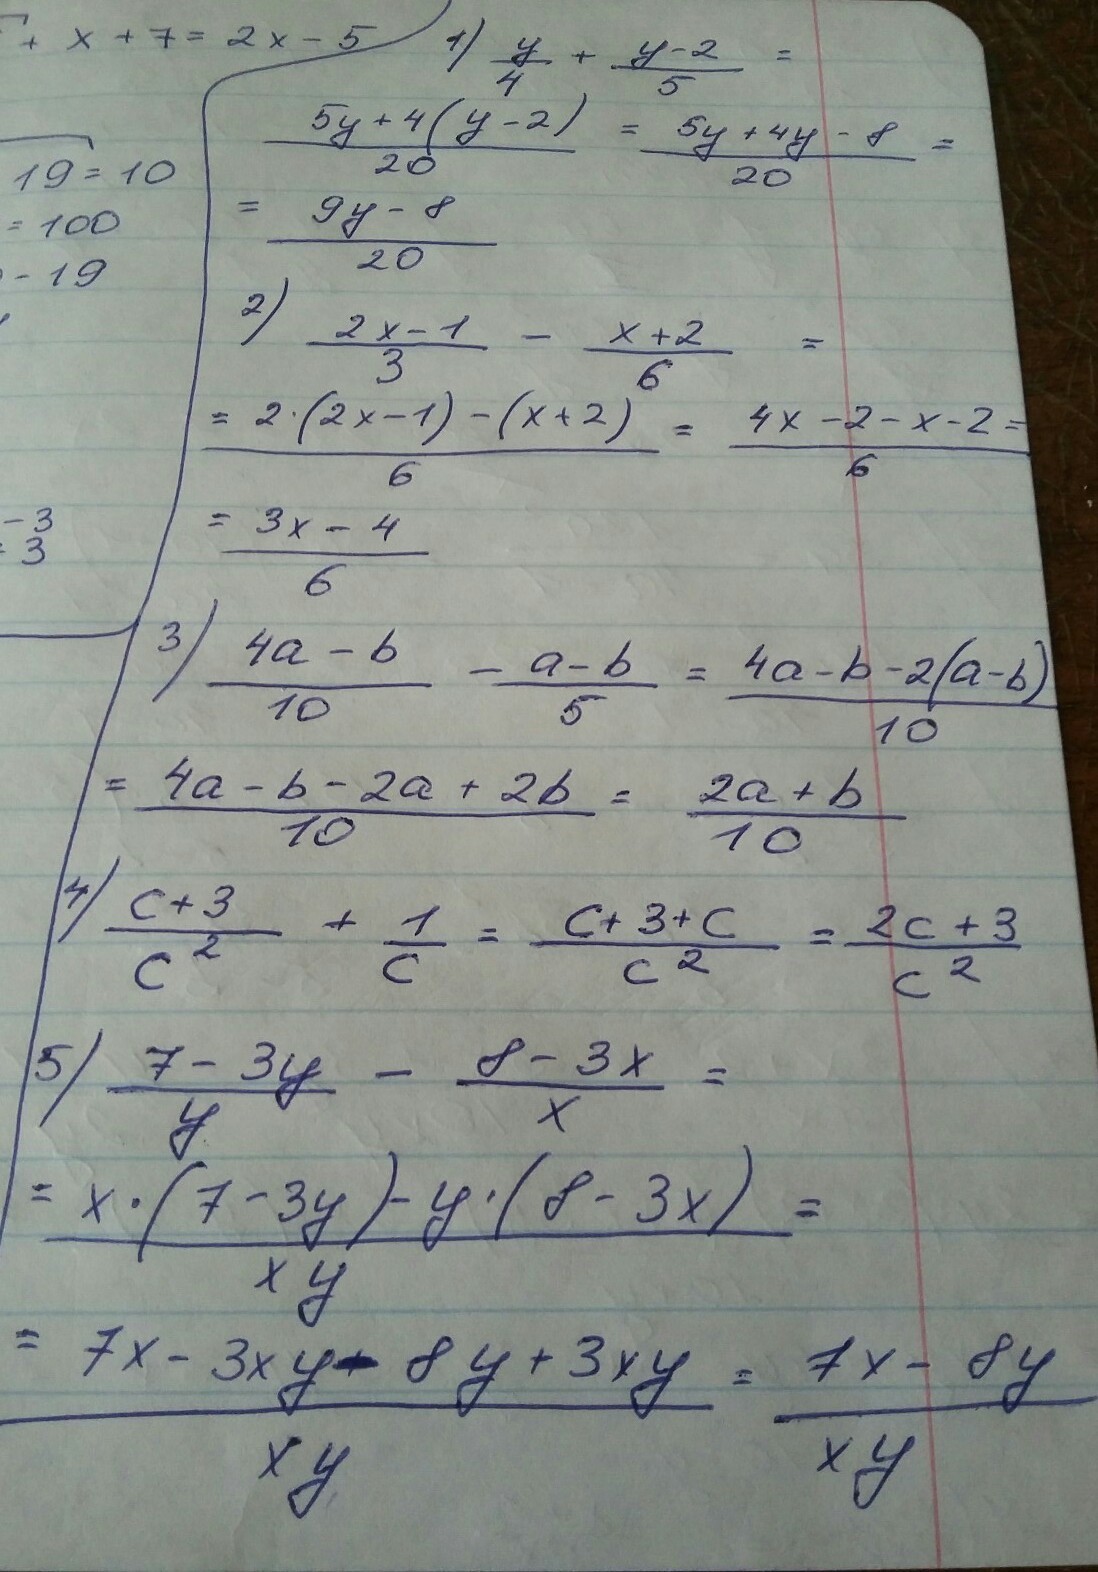 + x + 7 = 2x - 5
19 = 10
= 100
- 19
- 3
= 3
1) y/4 + (y-2)/5 =
(5y+4(y-2))/20 = (5y+4y-8)/20 =
= (9y-8)/20
2) (2x-1)/3 - (x+2)/6 =
= (2·(2x-1)-(x+2))/6 = (4x-2-x-2)/6 =
= (3x-4)/6
3) (4a-b)/10 - (a-b)/5 = (4a-b-2(a-b))/10
= (4a-b-2a+2b)/10 = (2a+b)/10
4) (c+3)/c² + 1/c = (c+3+c)/c² = (2c+3)/c²
5) (7-3y)/y - (8-3x)/x =
= (x·(7-3y)-y·(8-3x))/xy =
= (7x-3xy-8y+3xy)/xy = (7x-8y)/xy